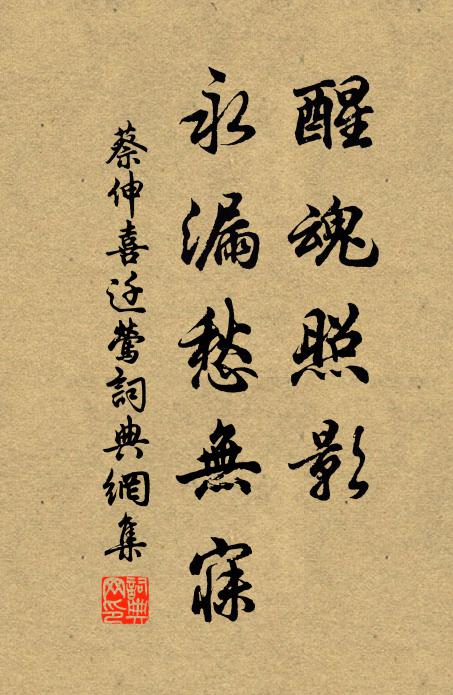 醒魂照影
永漏愁無寐
蔡伸喜迁鶯詞典網集
詞典網印